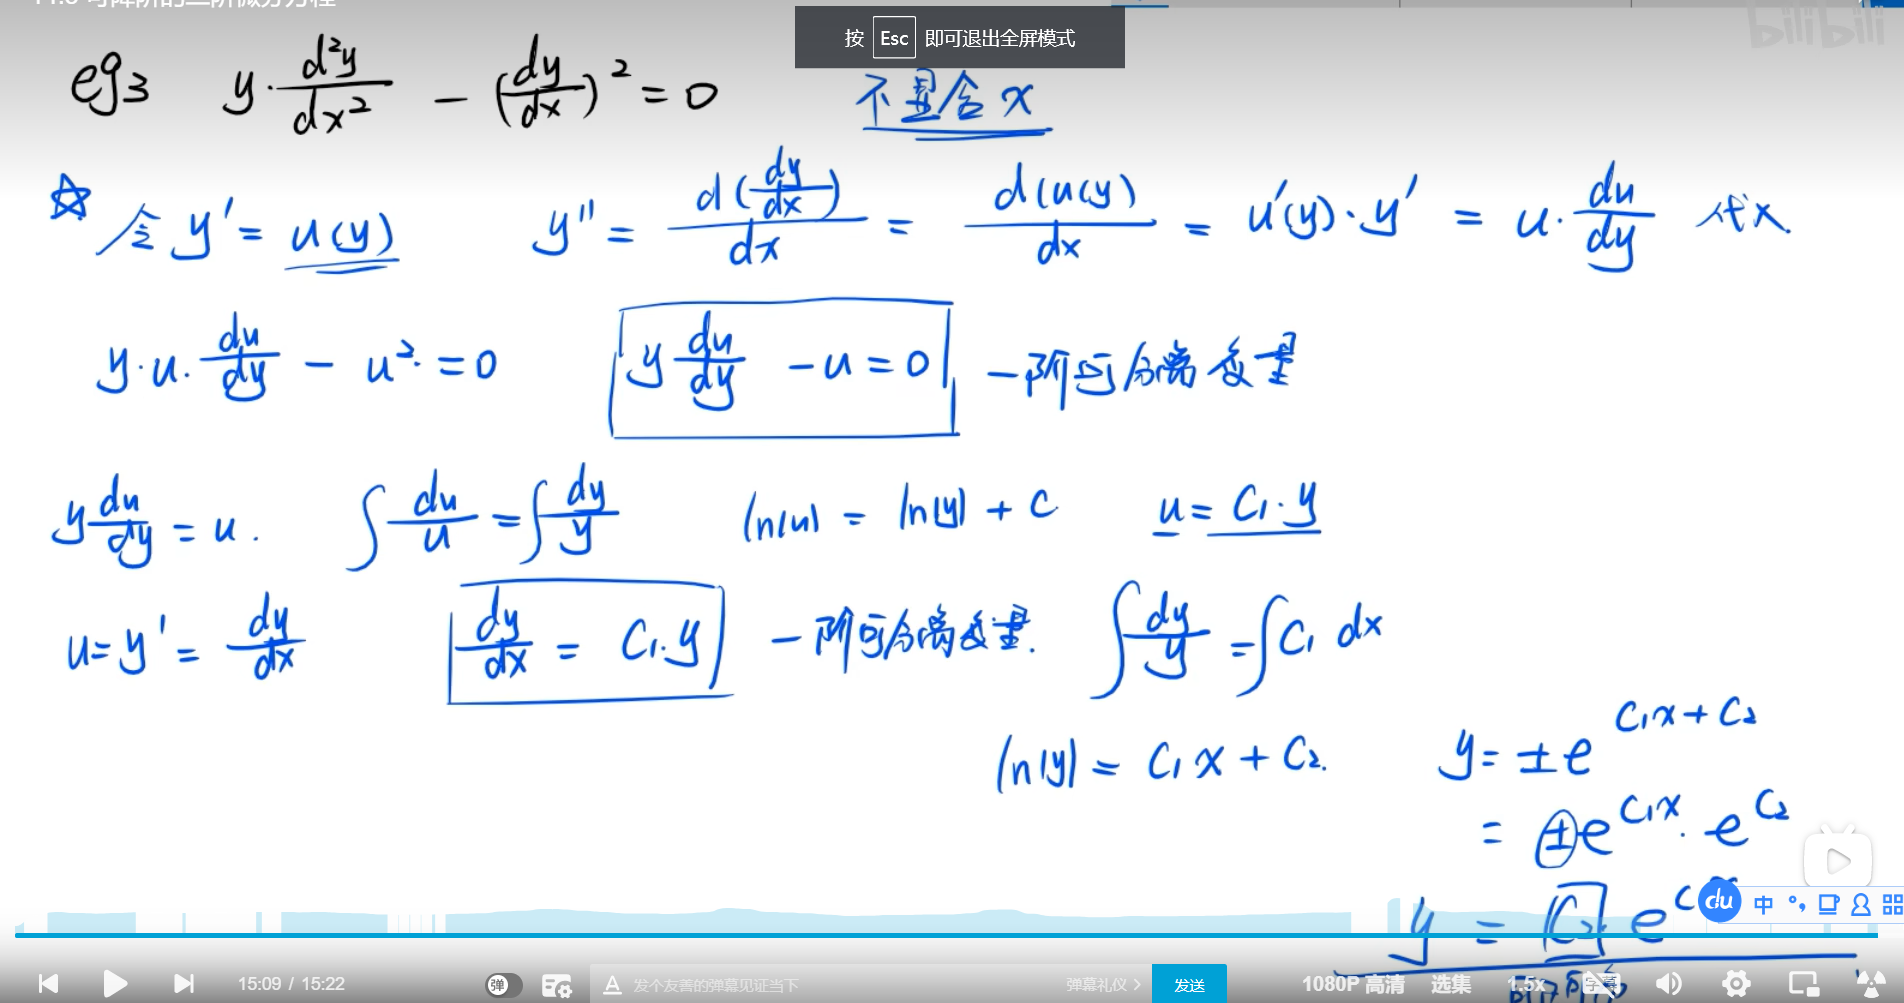 按 Esc 即可退出全屏模式
bilibili
eg3 y·d²y/dx² - (dy/dx)² = 0 不显含x
☆ 令 y' = u(y) y'' = d(dy/dx)/dx = d(u(y)/dx = u'(y)·y' = u·du/dy 代入
y·u·du/dy - u² = 0 y du/dy - u = 0 一阶可分离变量
y du/dy = u. ∫du/u = ∫dy/y ln|u| = ln|y| + C u = C₁·y
u = y' = dy/dx dy/dx = C₁·y 一阶可分离变量. ∫dy/y = ∫C₁ dx
ln|y| = C₁x + C₂. y = ±e^(C₁x+C₂)
= ±e^(C₁x)·e^(C₂)
y = C₂ e^C
du 中
15:09 / 15:22 弹 A 发个友善的弹幕见证当下 弹幕礼仪 > 发送 1080P 高清 选集 1.5x 字幕